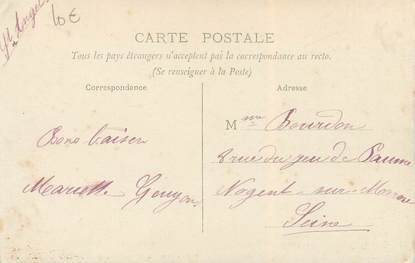 St Angel
10 €
CARTE POSTALE
Tous les pays étrangers n'acceptent pas la correspondance au recto.
(Se renseigner à la Poste)
Correspondance
Adresse
Bons baisers
Mariette Gouyon
Mme Bourdon
2 rue du jeu de Paume
Nogent-sur-Marne
Seine